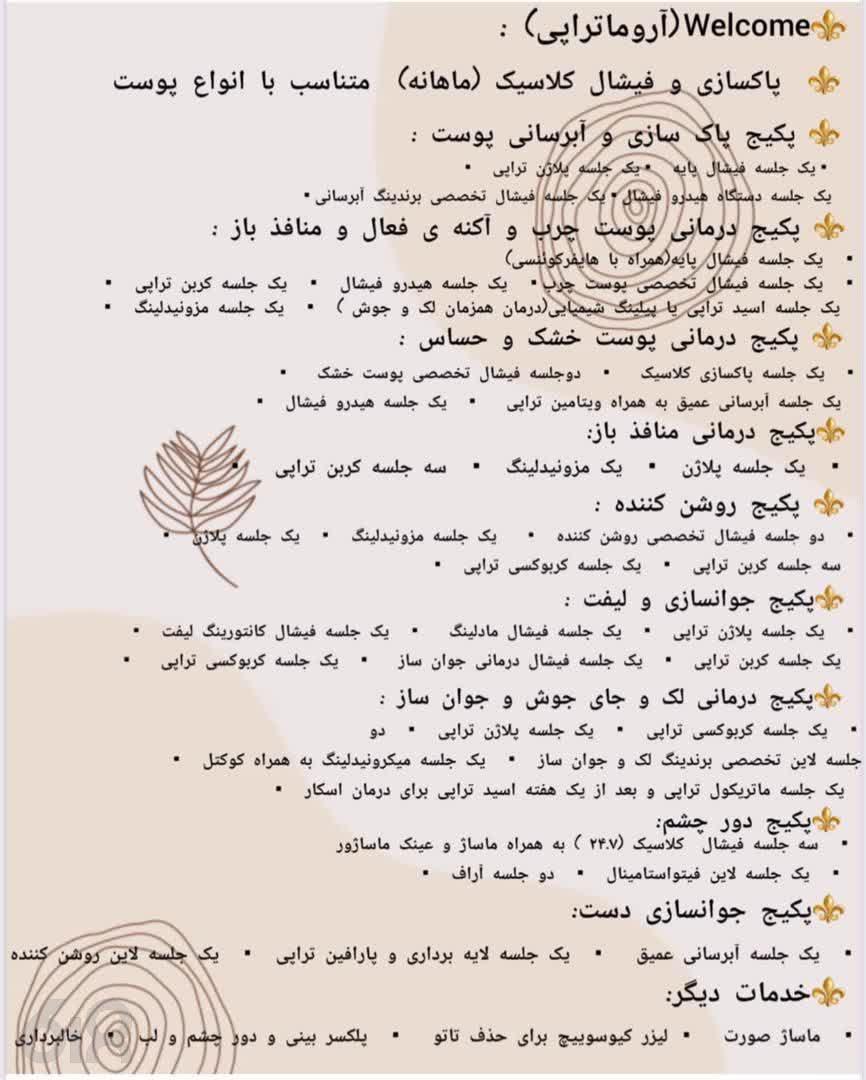 Welcome(آروماتراپی) :
پاکسازی و فیشال کلاسیک (ماهانه) متناسب با انواع پوست
پکیج پاک سازی و آبرسانی پوست :
▪یک جلسه فیشال پایه ▪یک جلسه پلاژن تراپی ▪
یک جلسه دستگاه هیدرو فیشال▪یک جلسه فیشال تخصصی برندینگ آبرسانی▪
پکیج درمانی پوست چرب و آکنه ی فعال و منافذ باز :
▪ یک جلسه فیشال پایه(همراه با هایفرکوئنسی)
▪ یک جلسه فیشال تخصصی پوست چرب▪ یک جلسه هیدرو فیشال ▪ یک جلسه کربن تراپی ▪
یک جلسه اسید تراپی یا پیلینگ شیمیایی(درمان همزمان لک و جوش ) ▪ یک جلسه مزونیدلینگ ▪
پکیج درمانی پوست خشک و حساس :
▪ یک جلسه پاکسازی کلاسیک ▪ دوجلسه فیشال تخصصی پوست خشک ▪
یک جلسه آبرسانی عمیق به همراه ویتامین تراپی ▪ یک جلسه هیدرو فیشال ▪
پکیج درمانی منافذ باز:
▪ یک جلسه پلاژن ▪ یک مزونیدلینگ ▪ سه جلسه کربن تراپی ▪
پکیج روشن کننده :
▪ دو جلسه فیشال تخصصی روشن کننده ▪ یک جلسه مزونیدلینگ ▪ یک جلسه پلاژن ▪
سه جلسه کربن تراپی ▪ یک جلسه کربوکسی تراپی ▪
پکیج جوانسازی و لیفت :
▪ یک جلسه پلاژن تراپی ▪ یک جلسه فیشال مادلینگ ▪ یک جلسه فیشال کانتورینگ لیفت ▪
یک جلسه کربن تراپی ▪ یک جلسه فیشال درمانی جوان ساز ▪ یک جلسه کربوکسی تراپی ▪
پکیج درمانی لک و جای جوش و جوان ساز :
▪ یک جلسه کربوکسی تراپی ▪ یک جلسه پلاژن تراپی ▪ دو
جلسه لاین تخصصی برندینگ لک و جوان ساز ▪ یک جلسه میکرونیدلینگ به همراه کوکتل ▪
یک جلسه ماتریکول تراپی و بعد از یک هفته اسید تراپی برای درمان اسکار ▪
پکیج دور چشم:
▪ سه جلسه فیشال کلاسیک (۲۴.۷ ) به همراه ماساژ و عینک ماساژور
▪ یک جلسه لاین فیتواستامینال ▪ دو جلسه آراف ▪
پکیج جوانسازی دست:
▪ یک جلسه آبرسانی عمیق ▪ یک جلسه لایه برداری و پارافین تراپی ▪ یک جلسه لاین روشن کننده
خدمات دیگر:
▪ ماساژ صورت ▪ لیزر کیوسوییچ برای حذف تاتو ▪ پلکسر بینی و دور چشم و لب ▪ خالبرداری